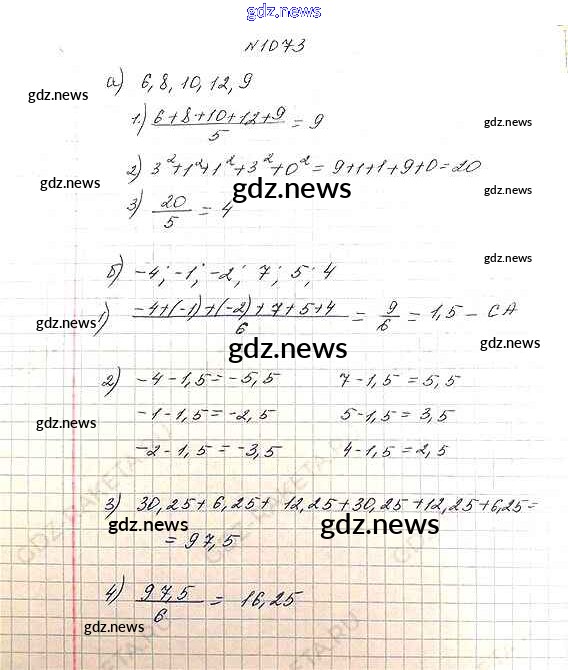 gdz.news
N1073
а) 6, 8, 10, 12, 9
gdz.news
1) (6+8+10+12+9)/5 = 9
gdz.news
2) 3²+1²+1²+3²+0² = 9+1+1+9+0=20
gdz.news
gdz.news
gdz.news
3) 20/5 = 4
б) -4; -1; -2; 7; 5; 4
gdz.news
1) (-4+(-1)+(-2)+7+5+4)/6 = 9/6 = 1,5 - СА
gdz.news
gdz.news
gdz.news
2) -4-1,5=-5,5 7-1,5=5,5
-1-1,5=-2,5 5-1,5=3,5
gdz.news
-2-1,5=-3,5 4-1,5=2,5
3) 30,25+6,25+12,25+30,25+12,25+6,25=
gdz.news
gdz.news
= 97,5
4) 97,5/6 = 16,25
gdz.news